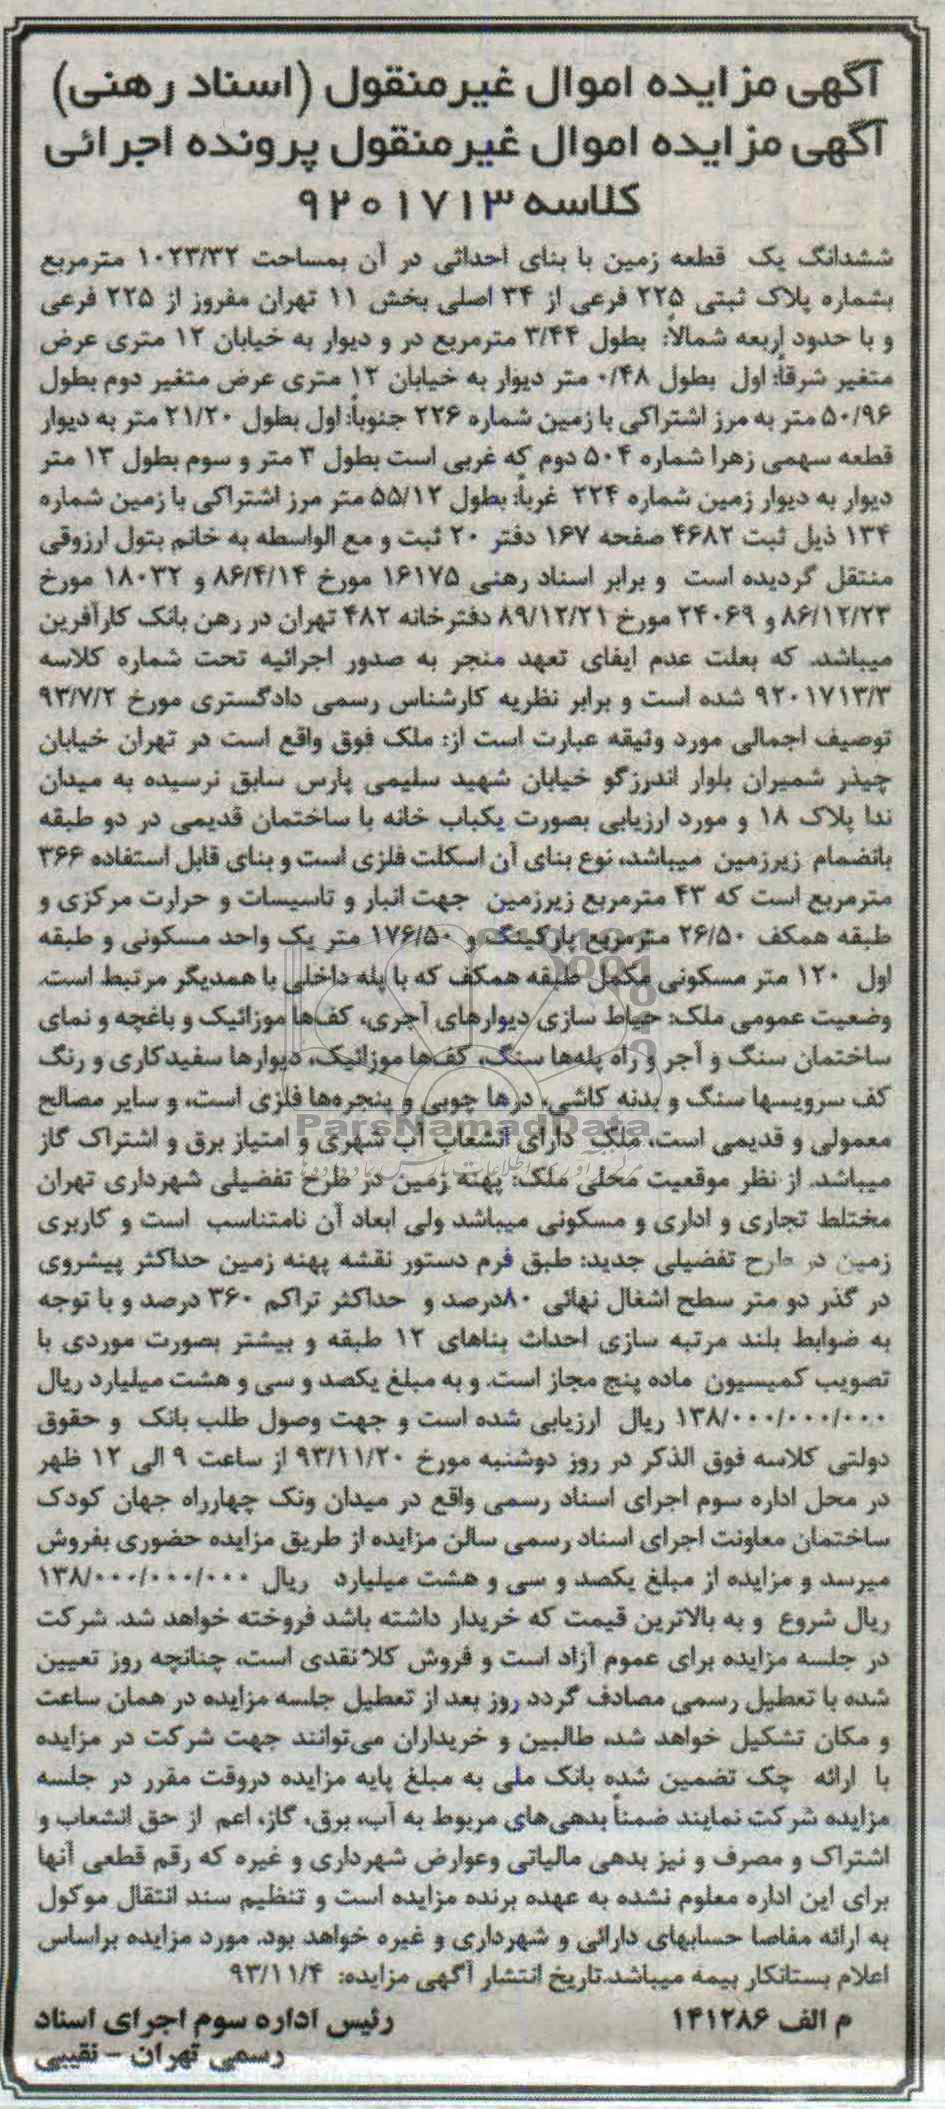 آگهی مزایده اموال غیرمنقول (اسناد رهنی)
آگهی مزایده اموال غیرمنقول پرونده اجرائی
کلاسه ۹۲۰۱۷۱۳
ششدانگ یک قطعه زمین با بنای احداثی در آن بمساحت ۱۰۲۳/۳۲ مترمربع
بشماره پلاک ثبتی ۲۲۵ فرعی از ۳۴ اصلی بخش ۱۱ تهران مفروز از ۲۲۵ فرعی
و با حدود اربعه شمالاً: بطول ۳/۴۴ مترمربع در و دیوار به خیابان ۱۲ متری عرض
متغیر شرقاً: اول بطول ۰/۴۸ متر دیوار به خیابان ۱۲ متری عرض متغیر دوم بطول
۵۰/۹۶ متر به مرز اشتراکی با زمین شماره ۲۲۶ جنوباً: اول بطول ۲۱/۲۰ متر به دیوار
قطعه سهمی زهرا شماره ۵۰۴ دوم که غربی است بطول ۳ متر و سوم بطول ۱۳ متر
دیوار به دیوار زمین شماره ۲۲۴ غرباً: بطول ۵۵/۱۲ متر مرز اشتراکی با زمین شماره
۱۳۴ ذیل ثبت ۴۶۸۲ صفحه ۱۶۷ دفتر ۲۰ ثبت و مع الواسطه به خانم بتول ارزوقی
منتقل گردیده است و برابر اسناد رهنی ۱۶۱۷۵ مورخ ۸۶/۴/۱۴ و ۱۸۰۳۲ مورخ
۸۶/۱۲/۲۳ و ۲۴۰۶۹ مورخ ۸۹/۱۲/۲۱ دفترخانه ۴۸۲ تهران در رهن بانک کارآفرین
میباشد. که بعلت عدم ایفای تعهد منجر به صدور اجرائیه تحت شماره کلاسه
۹۲۰۱۷۱۳/۳ شده است و برابر نظریه کارشناس رسمی دادگستری مورخ ۹۳/۷/۲
توصیف اجمالی مورد وثیقه عبارت است از: ملک فوق واقع است در تهران خیابان
چیذر شمیران بلوار اندرزگو خیابان شهید سلیمی پارس سابق نرسیده به میدان
ندا پلاک ۱۸ و مورد ارزیابی بصورت یکباب خانه با ساختمان قدیمی در دو طبقه
بانضمام زیرزمین میباشد، نوع بنای آن اسکلت فلزی است و بنای قابل استفاده ۳۶۶
مترمربع است که ۴۳ مترمربع زیرزمین جهت انبار و تاسیسات و حرارت مرکزی و
طبقه همکف ۲۶/۵۰ مترمربع پارکینگ و ۱۷۶/۵۰ متر یک واحد مسکونی و طبقه
اول ۱۲۰ متر مسکونی مکمل طبقه همکف که با پله داخلی با همدیگر مرتبط است.
وضعیت عمومی ملک: حیاط سازی دیوارهای آجری، کف‌ها موزائیک و باغچه و نمای
ساختمان سنگ و آجر و راه پله‌ها سنگ، کف‌ها موزائیک، دیوارها سفیدکاری و رنگ
کف سرویسها سنگ و بدنه کاشی، درها چوبی و پنجره‌ها فلزی است، و سایر مصالح
معمولی و قدیمی است، ملک دارای انشعاب آب شهری و امتیاز برق و اشتراک گاز
میباشد. از نظر موقعیت محلی ملک: پهنه زمین در طرح تفضیلی شهرداری تهران
مختلط تجاری و اداری و مسکونی میباشد ولی ابعاد آن نامتناسب است و کاربری
زمین در طرح تفضیلی جدید: طبق فرم دستور نقشه پهنه زمین حداکثر پیشروی
در گذر دو متر سطح اشغال نهائی ۸۰درصد و حداکثر تراکم ۳۶۰ درصد و با توجه
به ضوابط بلند مرتبه سازی احداث بناهای ۱۲ طبقه و بیشتر بصورت موردی با
تصویب کمیسیون ماده پنج مجاز است. و به مبلغ یکصد و سی و هشت میلیارد ریال
۱۳۸/۰۰۰/۰۰۰/۰۰۰ ریال ارزیابی شده است و جهت وصول طلب بانک و حقوق
دولتی کلاسه فوق الذکر در روز دوشنبه مورخ ۹۳/۱۱/۲۰ از ساعت ۹ الی ۱۲ ظهر
در محل اداره سوم اجرای اسناد رسمی واقع در میدان ونک چهارراه جهان کودک
ساختمان معاونت اجرای اسناد رسمی سالن مزایده از طریق مزایده حضوری بفروش
میرسد و مزایده از مبلغ یکصد و سی و هشت میلیارد ریال ۱۳۸/۰۰۰/۰۰۰/۰۰۰
ریال شروع و به بالاترین قیمت که خریدار داشته باشد فروخته خواهد شد. شرکت
در جلسه مزایده برای عموم آزاد است و فروش کلا نقدی است، چنانچه روز تعیین
شده با تعطیل رسمی مصادف گردد روز بعد از تعطیل جلسه مزایده در همان ساعت
و مکان تشکیل خواهد شد، طالبین و خریداران می‌توانند جهت شرکت در مزایده
با ارائه چک تضمین شده بانک ملی به مبلغ پایه مزایده دروقت مقرر در جلسه
مزایده شرکت نمایند ضمناً بدهی‌های مربوط به آب، برق، گاز، اعم از حق انشعاب و
اشتراک و مصرف و نیز بدهی مالیاتی وعوارض شهرداری و غیره که رقم قطعی آنها
برای این اداره معلوم نشده به عهده برنده مزایده است و تنظیم سند انتقال موکول
به ارائه مفاصا حسابهای دارائی و شهرداری و غیره خواهد بود. مورد مزایده براساس
اعلام بستانکار بیمه میباشد.تاریخ انتشار آگهی مزایده: ۹۳/۱۱/۴
م الف ۱۴۱۲۸۶
رئیس اداره سوم اجرای اسناد
رسمی تهران - نقیبی
ParsNamadData